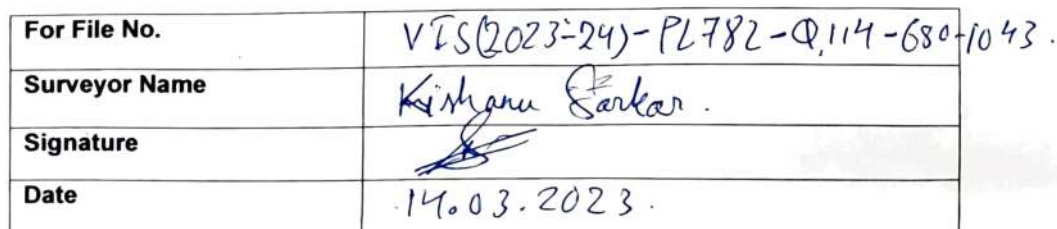 For File No. VIS(2023-24)-PL782-Q,114-680-1043.
Surveyor Name Kishanu Sarkar.
Signature
Date 14.03.2023.